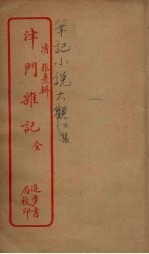 筆記小説大觀
清 張燾輯
津門雜記 全
進步書局校印